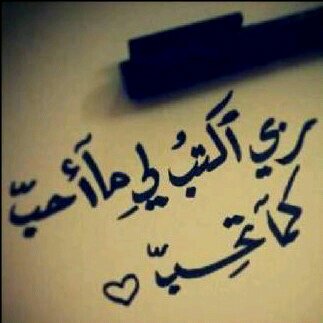 ربي اكتبُ لي مآ أحبّ
كمآ تحِبّ ♡